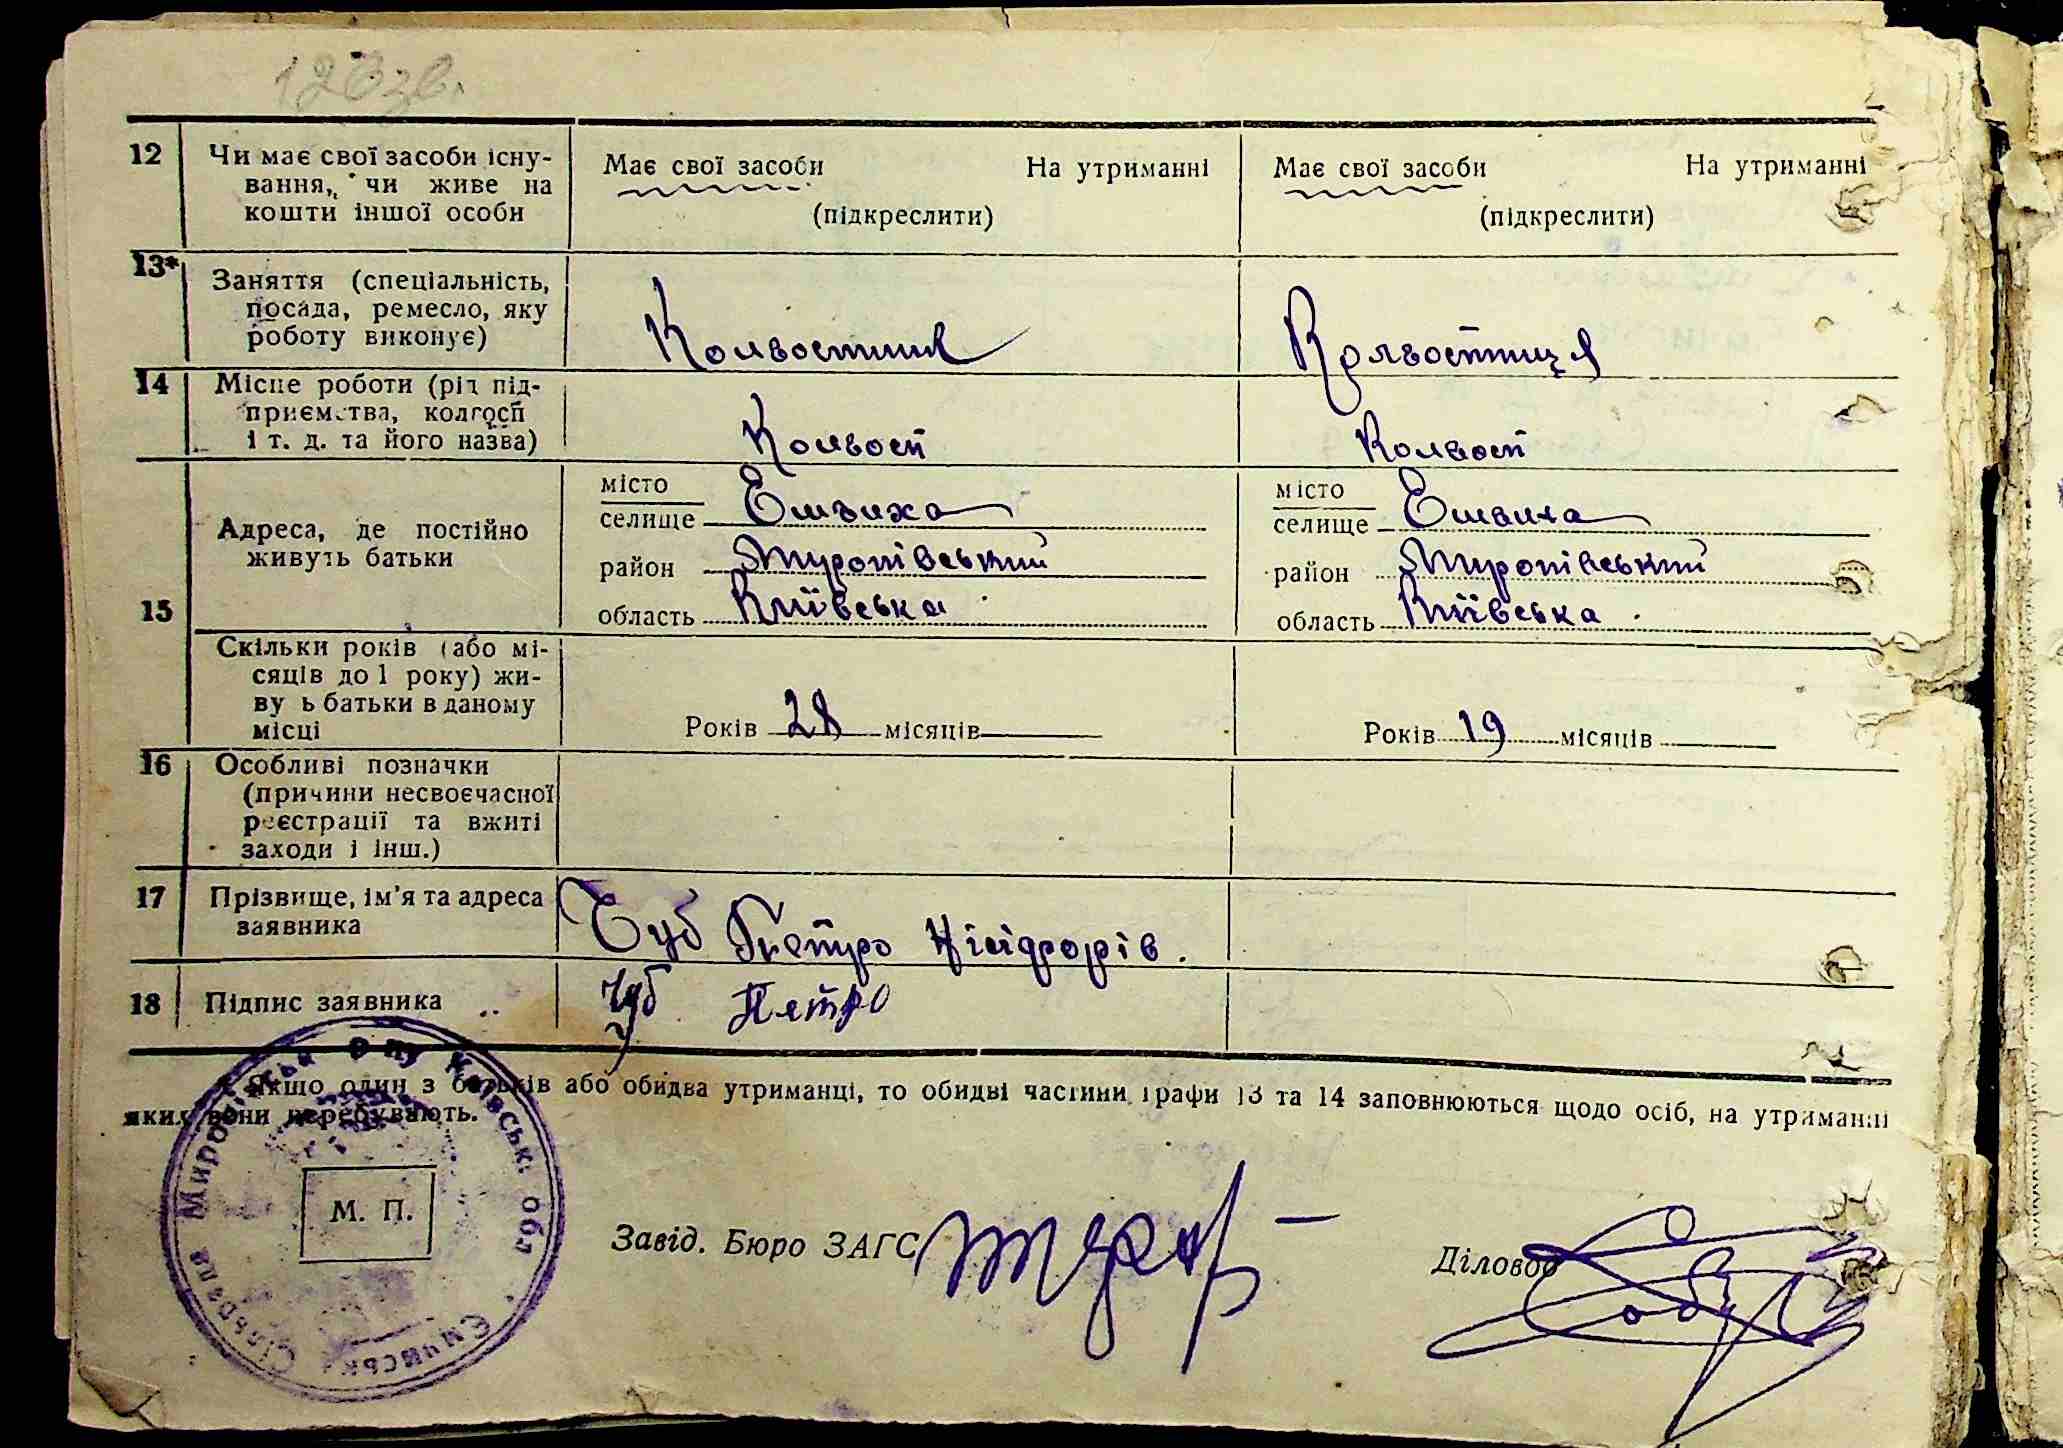 126зв.
12 Чи має свої засоби існу-
вання, чи живе на
кошти іншої особи
Має свої засоби На утриманні
(підкреслити)
Має свої засоби На утриманні
(підкреслити)
13* Заняття (спеціальність,
посада, ремесло, яку
роботу виконує)
Колгостник
Колгостниця
14 Місце роботи (рід під-
приємства, колгосп
і т. д. та його назва)
Колгосп
Колгосп
15 Адреса, де постійно
живуть батьки
місто
селище Ємчиха
район Миропівський
область Київська
місто
селище Ємчиха
район Миропівський
область Київська
Скільки років (або мі-
сяців до 1 року) жи-
ву ь батьки в даному
місці
Років 28 місяців
Років 19 місяців
16 Особливі позначки
(причини несвоєчасної
реєстрації та вжиті
заходи і інш.)
17 Прізвище, ім'я та адреса
заявника
Чуб Петро Нікіфорів.
18 Підпис заявника
Чуб Петро
Якщо один з батьків або обидва утриманці, то обидві частини графи 13 та 14 заповнюються щодо осіб, на утриманні
яких вони перебувають.
М. П.
Сільрада Миропівськ Р-ну Київськ. обл. Ємчиськ
Завід. Бюро ЗАГС
Діловод